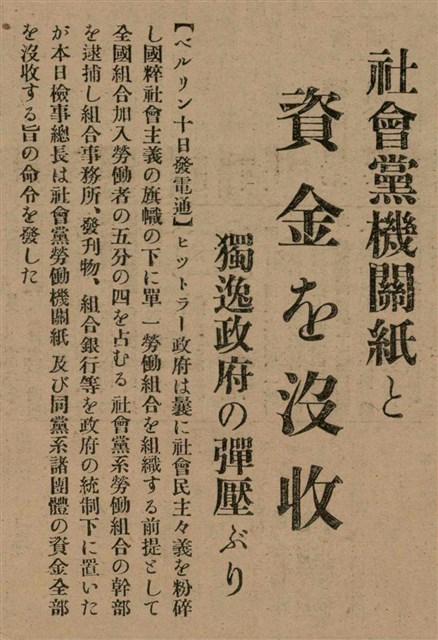 社會黨機關紙と
資金を沒收
獨逸政府の彈壓ぶり
【ベルリン十日發電通】ヒツトラー政府は曩に社會民主々義を粉碎
し國粹社會主義の旗幟の下に單一勞働組合を組織する前提として
全國組合加入勞働者の五分の四を占むる社會黨系勞働組合の幹部
を逮捕し組合事務所、發刊物、組合銀行等を政府の統制下に置いた
が本日檢事總長は社會黨勞働機關紙及び同黨系諸團體の資金全部
を沒收する旨の命令を發した